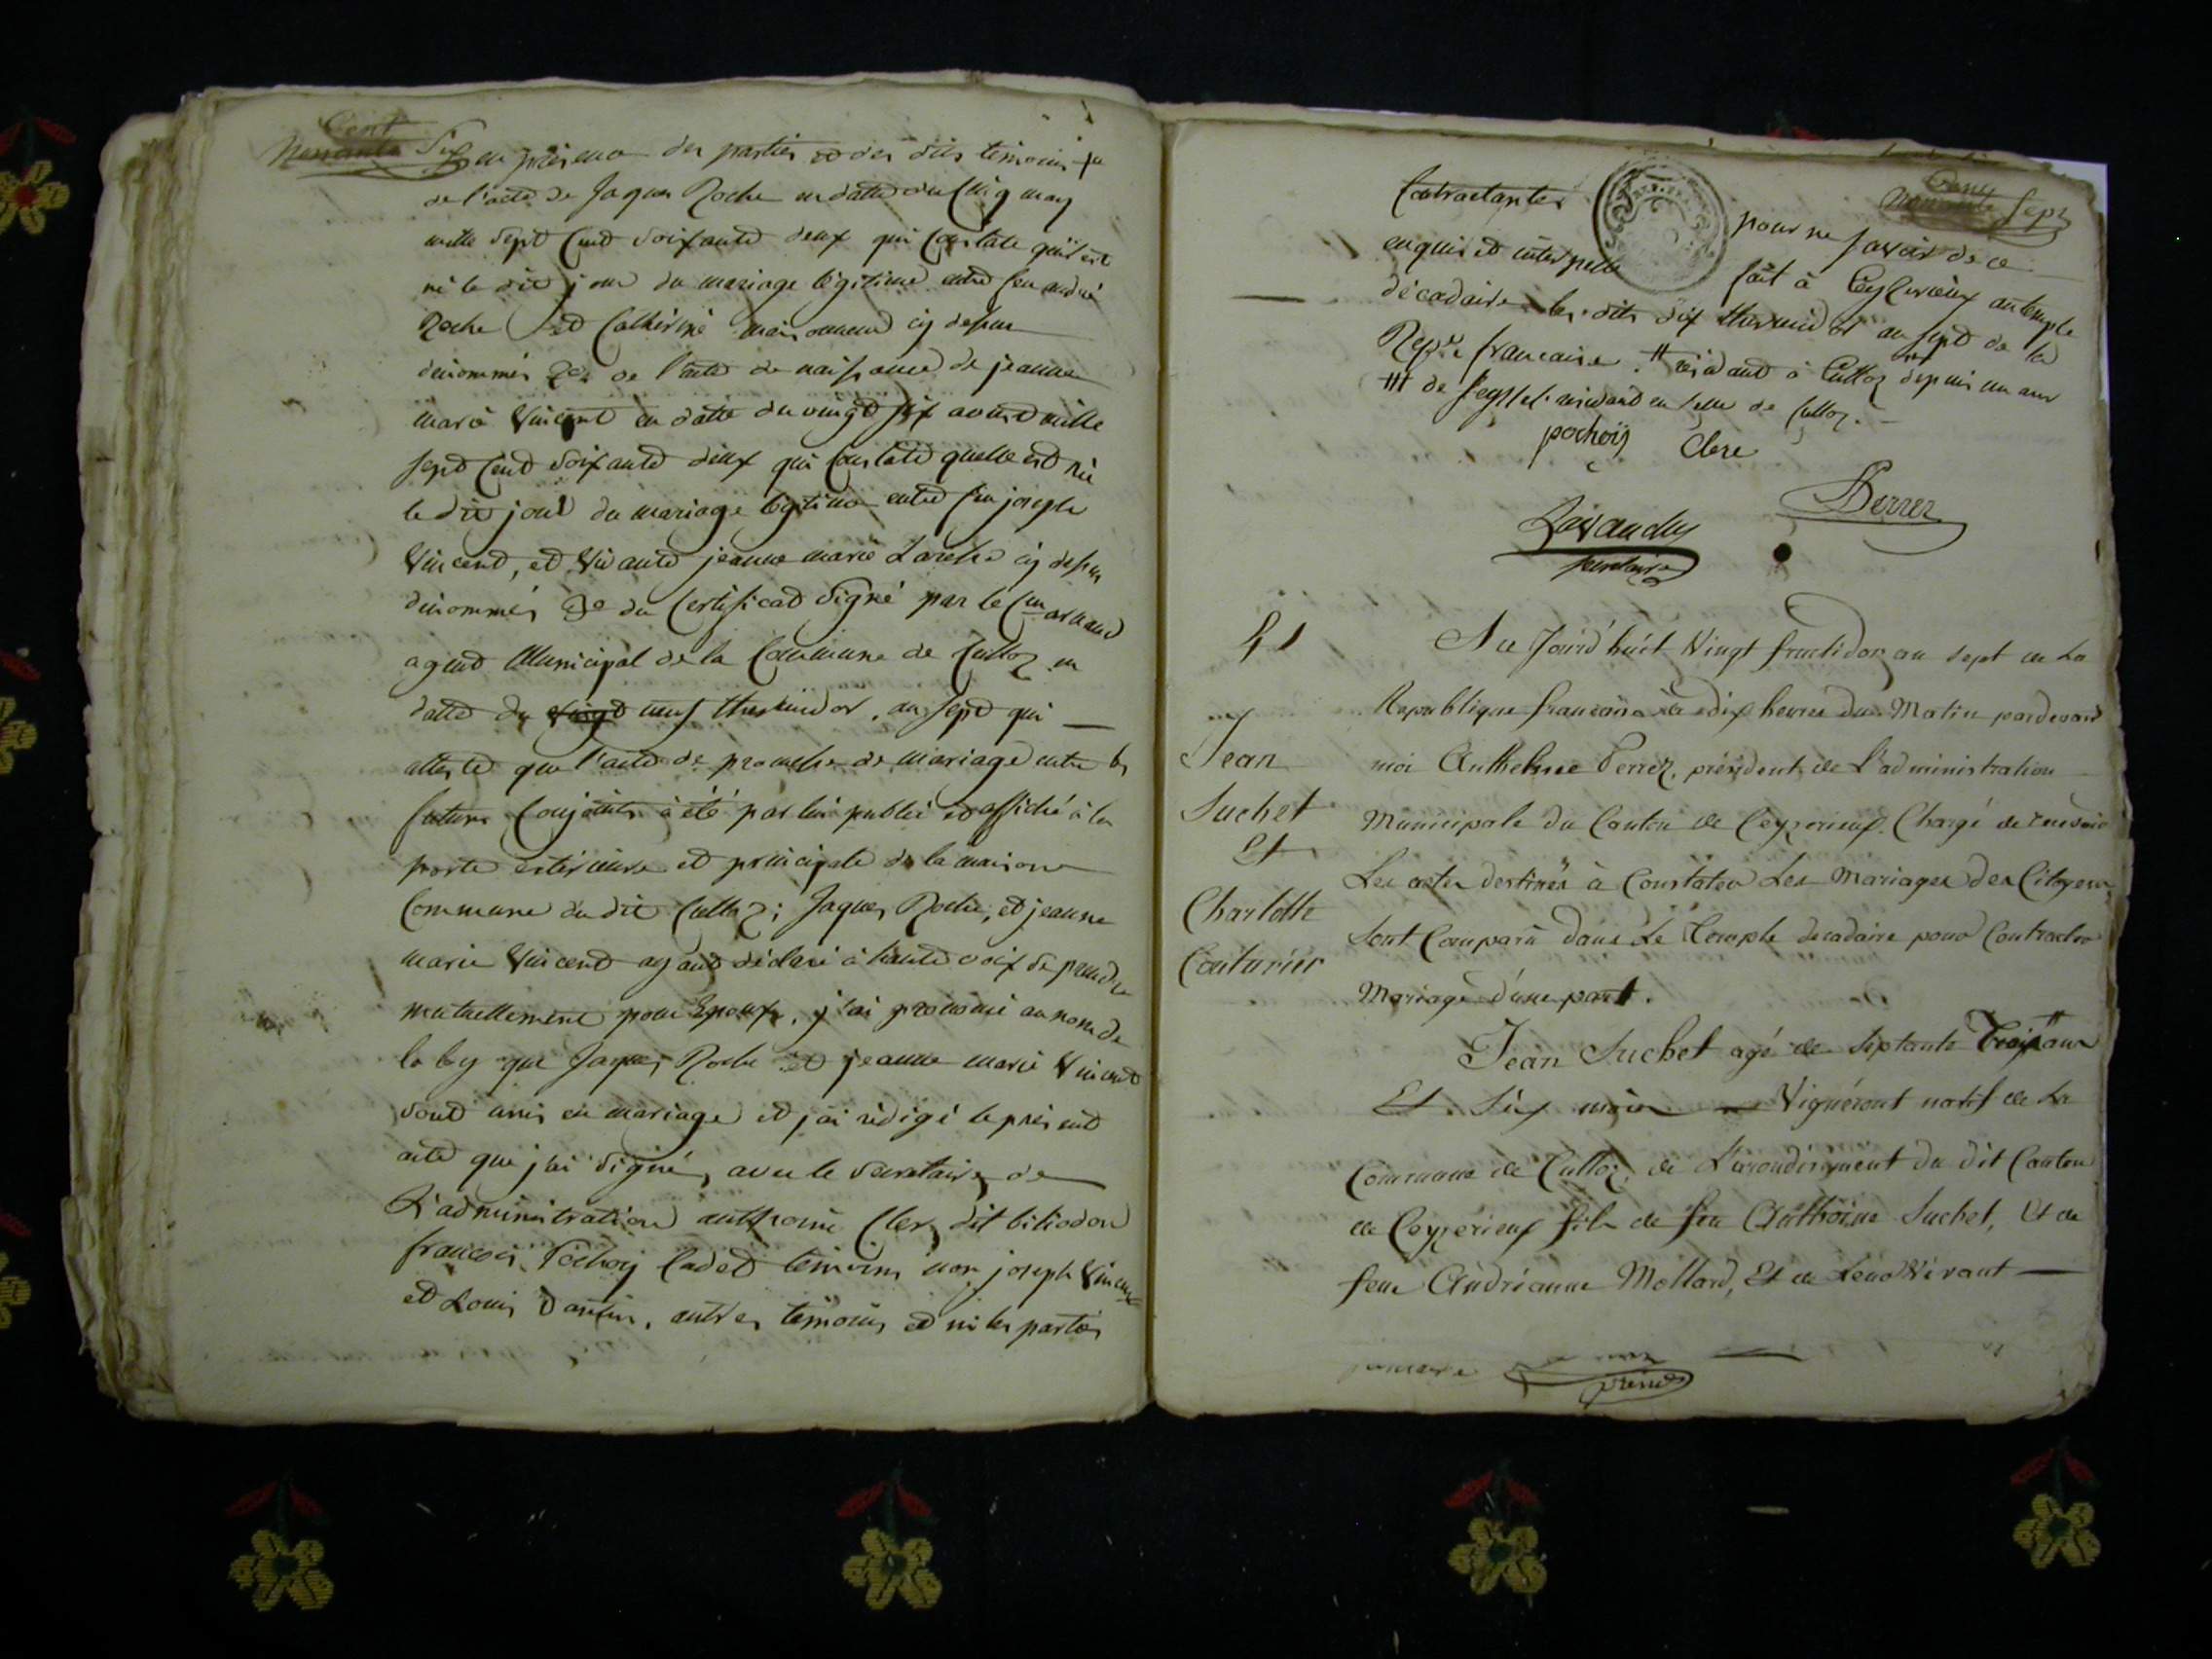 Cent
Nonante Six
en présence des parties et des dits témoins 1°
de l'acte de Jaques Roche en datte du Cinq may
mille Sept Cent Soixante deux qui Constate qu'il est
né le dit jour du mariage légitime entre feu andré
Roche et Catherine cy dessus
dénommés 2° de l'acte de naissance de jeanne
marie Vincent en datte du vingt six aoust mille
Sept Cent Soixante deux qui Constate quelle est née
le dit jour du mariage légitime entre feu joseph
Vincent, et vivante jeanne marie Laroche cy dessus
dénommés 3° du Certificat Signé par le Cen arnaud
agent Municipal de la Commune de Culloz en
datte du vingt neuf thermidor, an Sept qui
atteste que l'acte de promesse de mariage entre les
futurs Conjoints à été par lui publié et affiché à la
porte extérieure et principale de la maison
Commune du dit Culloz; Jaques Roche, et jeanne
marie Vincent ayant déclaré à haute voix se prendre
mutuellement pour Epoux, j'ai prononcé au nom de
la loy que Jaques Roche et jeanne marie Vincent
sont unis en mariage et j'ai rédigé le présent
acte que j'ai signé, avec le Secretaire de
L'administration anthoine Clerc dit biliodon
francois Pochoy Cadet témoins non joseph Vincent
et Louis Dantin, autres témoins et ni les parties
Cent
Nonante Sept
Contractantes pour ne savoir de ce
enquis et interpellé fait à Ceyzerieux au temple
décadaire les dits dix thermidor an sept de la
Repue francaise. # résidant à Culloz depuis un an
## de Seyssel résidant en celle de Culloz.
pochoÿ Clerc
Perrez
Ravaudy
secretaire
41
Jean
Suchet
Et
Charlotte
Couturier
Au Jourd'huit Vingt fructidor an sept de La
Republique francaise à dix heures du Matin pardevant
moi Anthelme Perrez, président de L'administration
Municipale du Canton de Ceyzerieux. Chargé de recevoir
Les actes destinés à Constater Les Mariages des Citoyens
sont Comparu dans Le Temple decadaire pour Contracter
Mariage d'une part.
Jean Suchet agé de Septante Trois ans
Et Six mois Vignéront natif de La
Commune de Culloz, de L'arondisement du dit Canton
de Ceyzerieux fils de feu Anthoine Suchet, Et de
feue Andréanne Mollard, Et de Leur Vivant